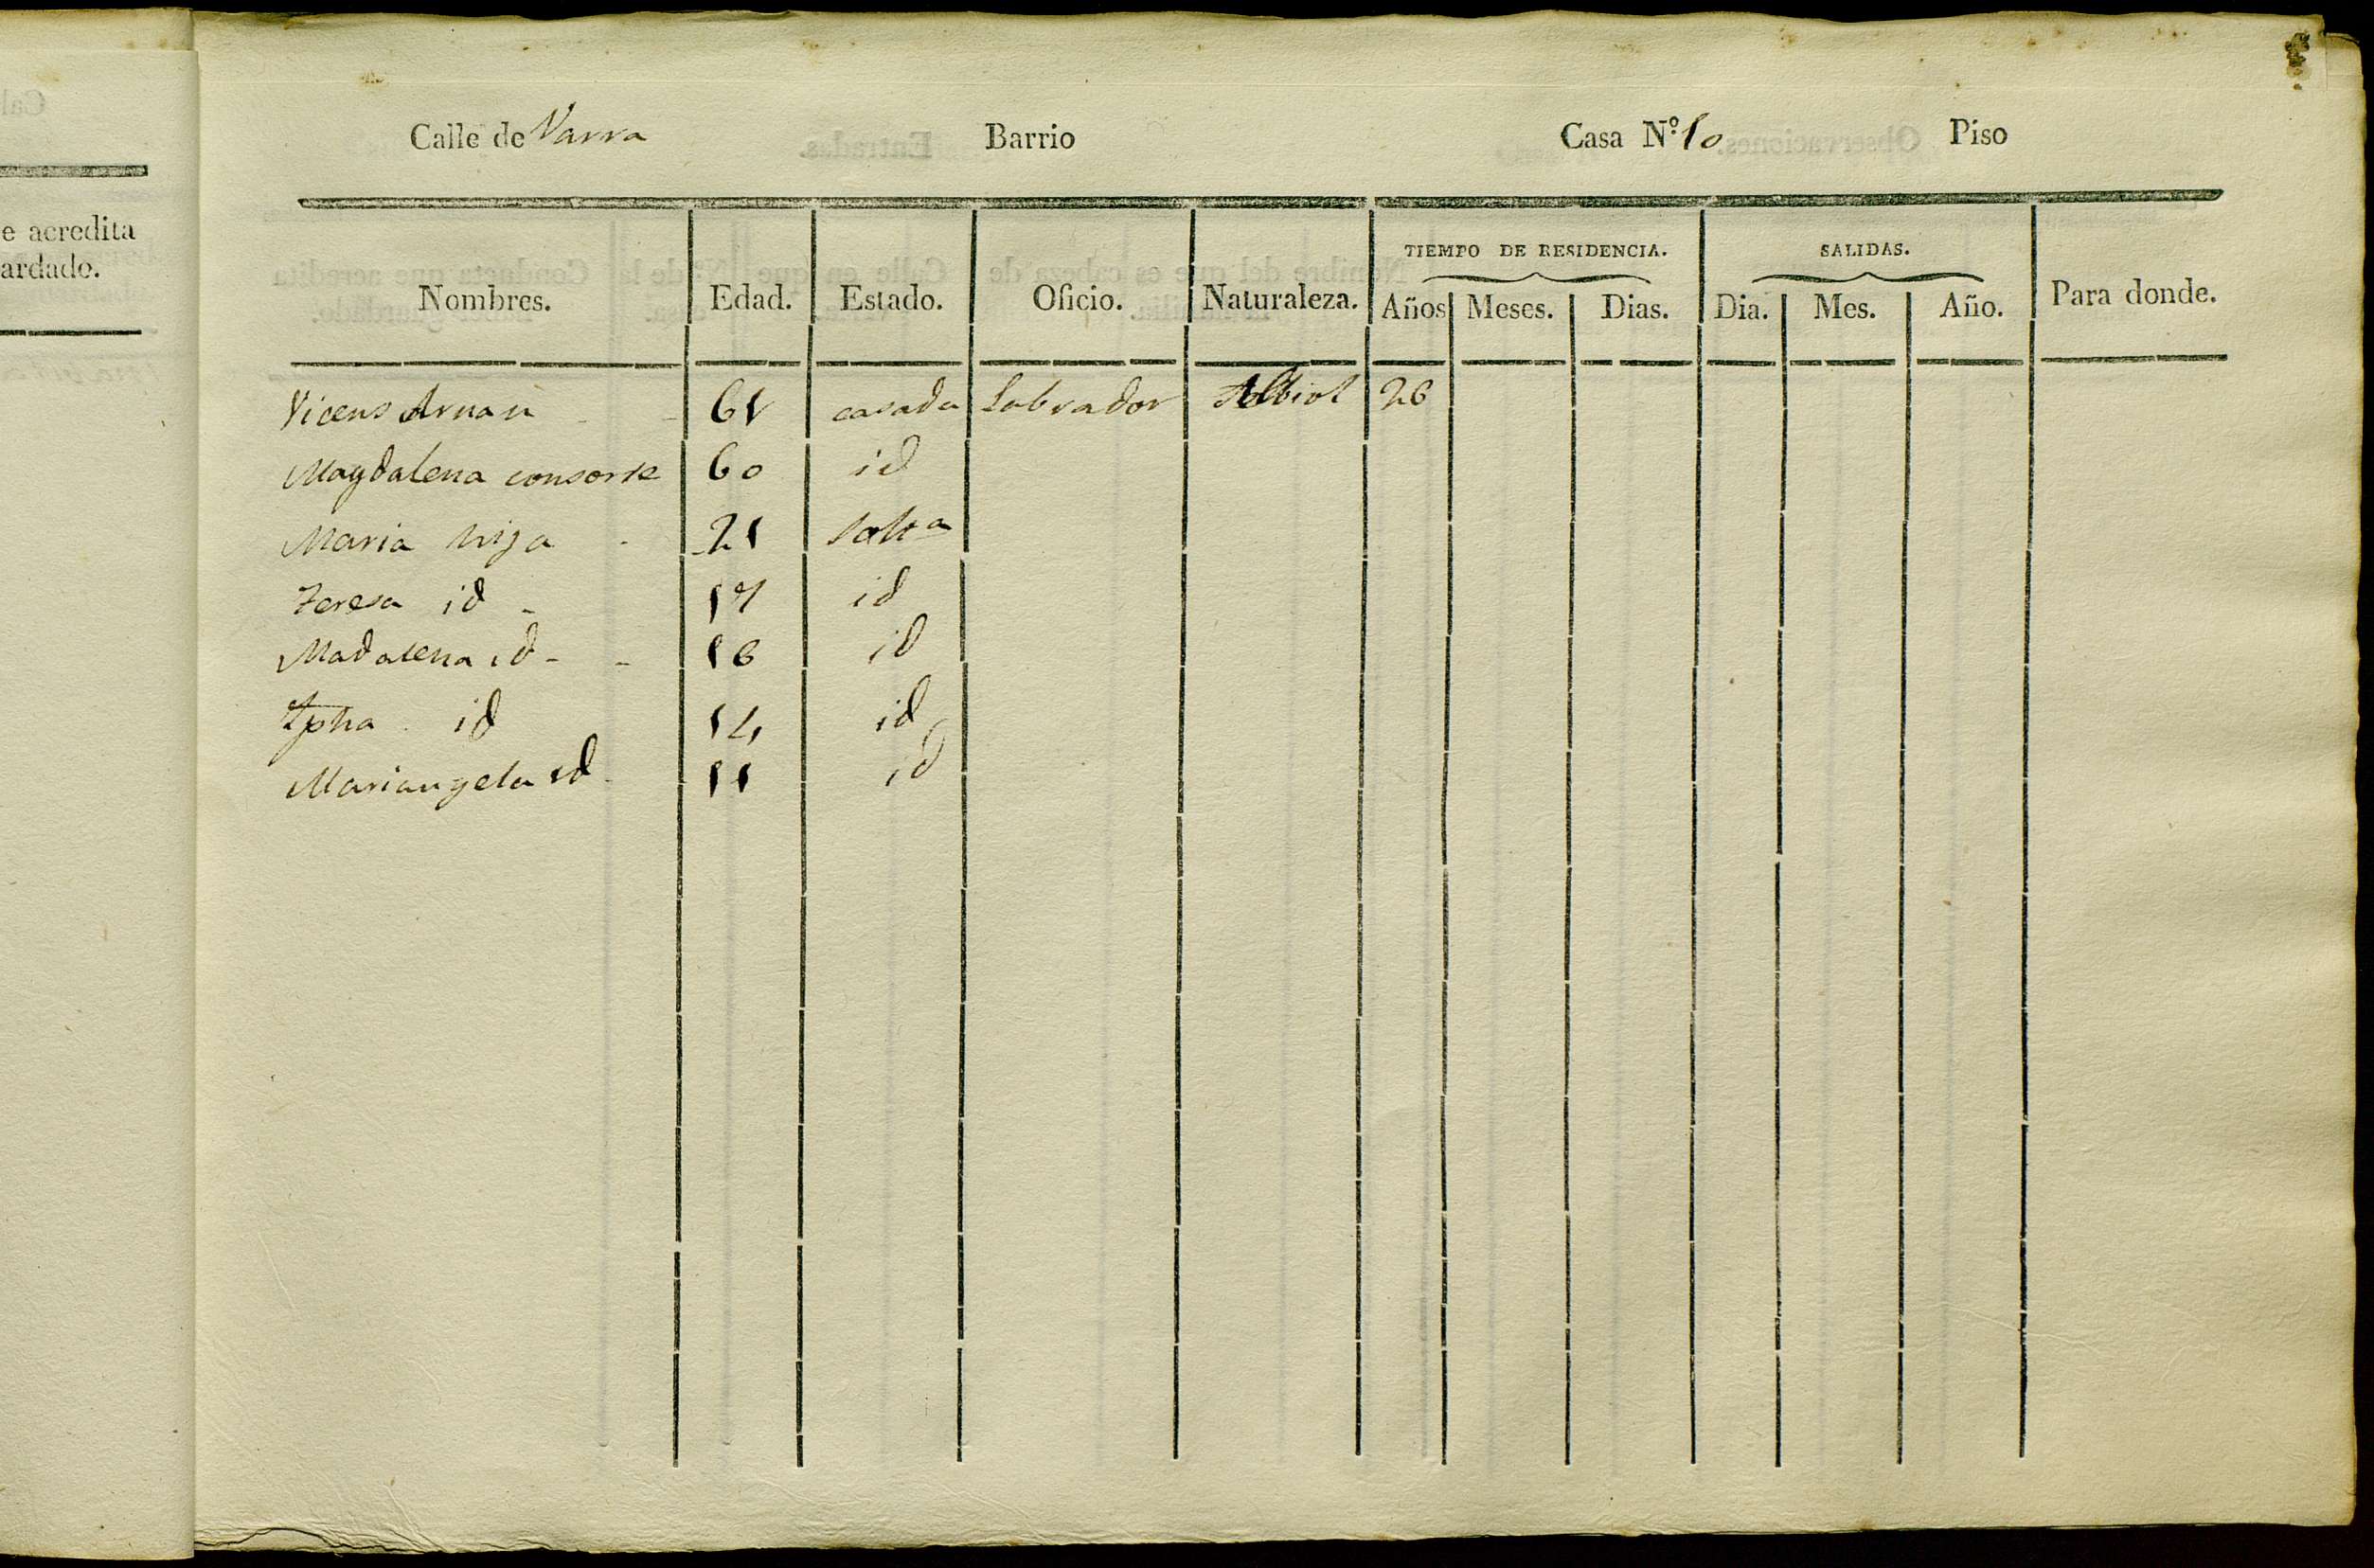 e acredita
ardado.
Calle de Varra Barrio Casa Nº 10 Piso
TIEMPO DE RESIDENCIA. SALIDAS.
Nombres. Edad. Estado. Oficio. Naturaleza. Años Meses. Dias. Dia. Mes. Año. Para donde.
Vicens Arnau 61 casada Labrador 26
Magdalena consorte 60 id
Maria hija 21 solta
Teresa id 17 id
Madalena id 16 id
Jpha id 14 id
Mariangela id 11 id